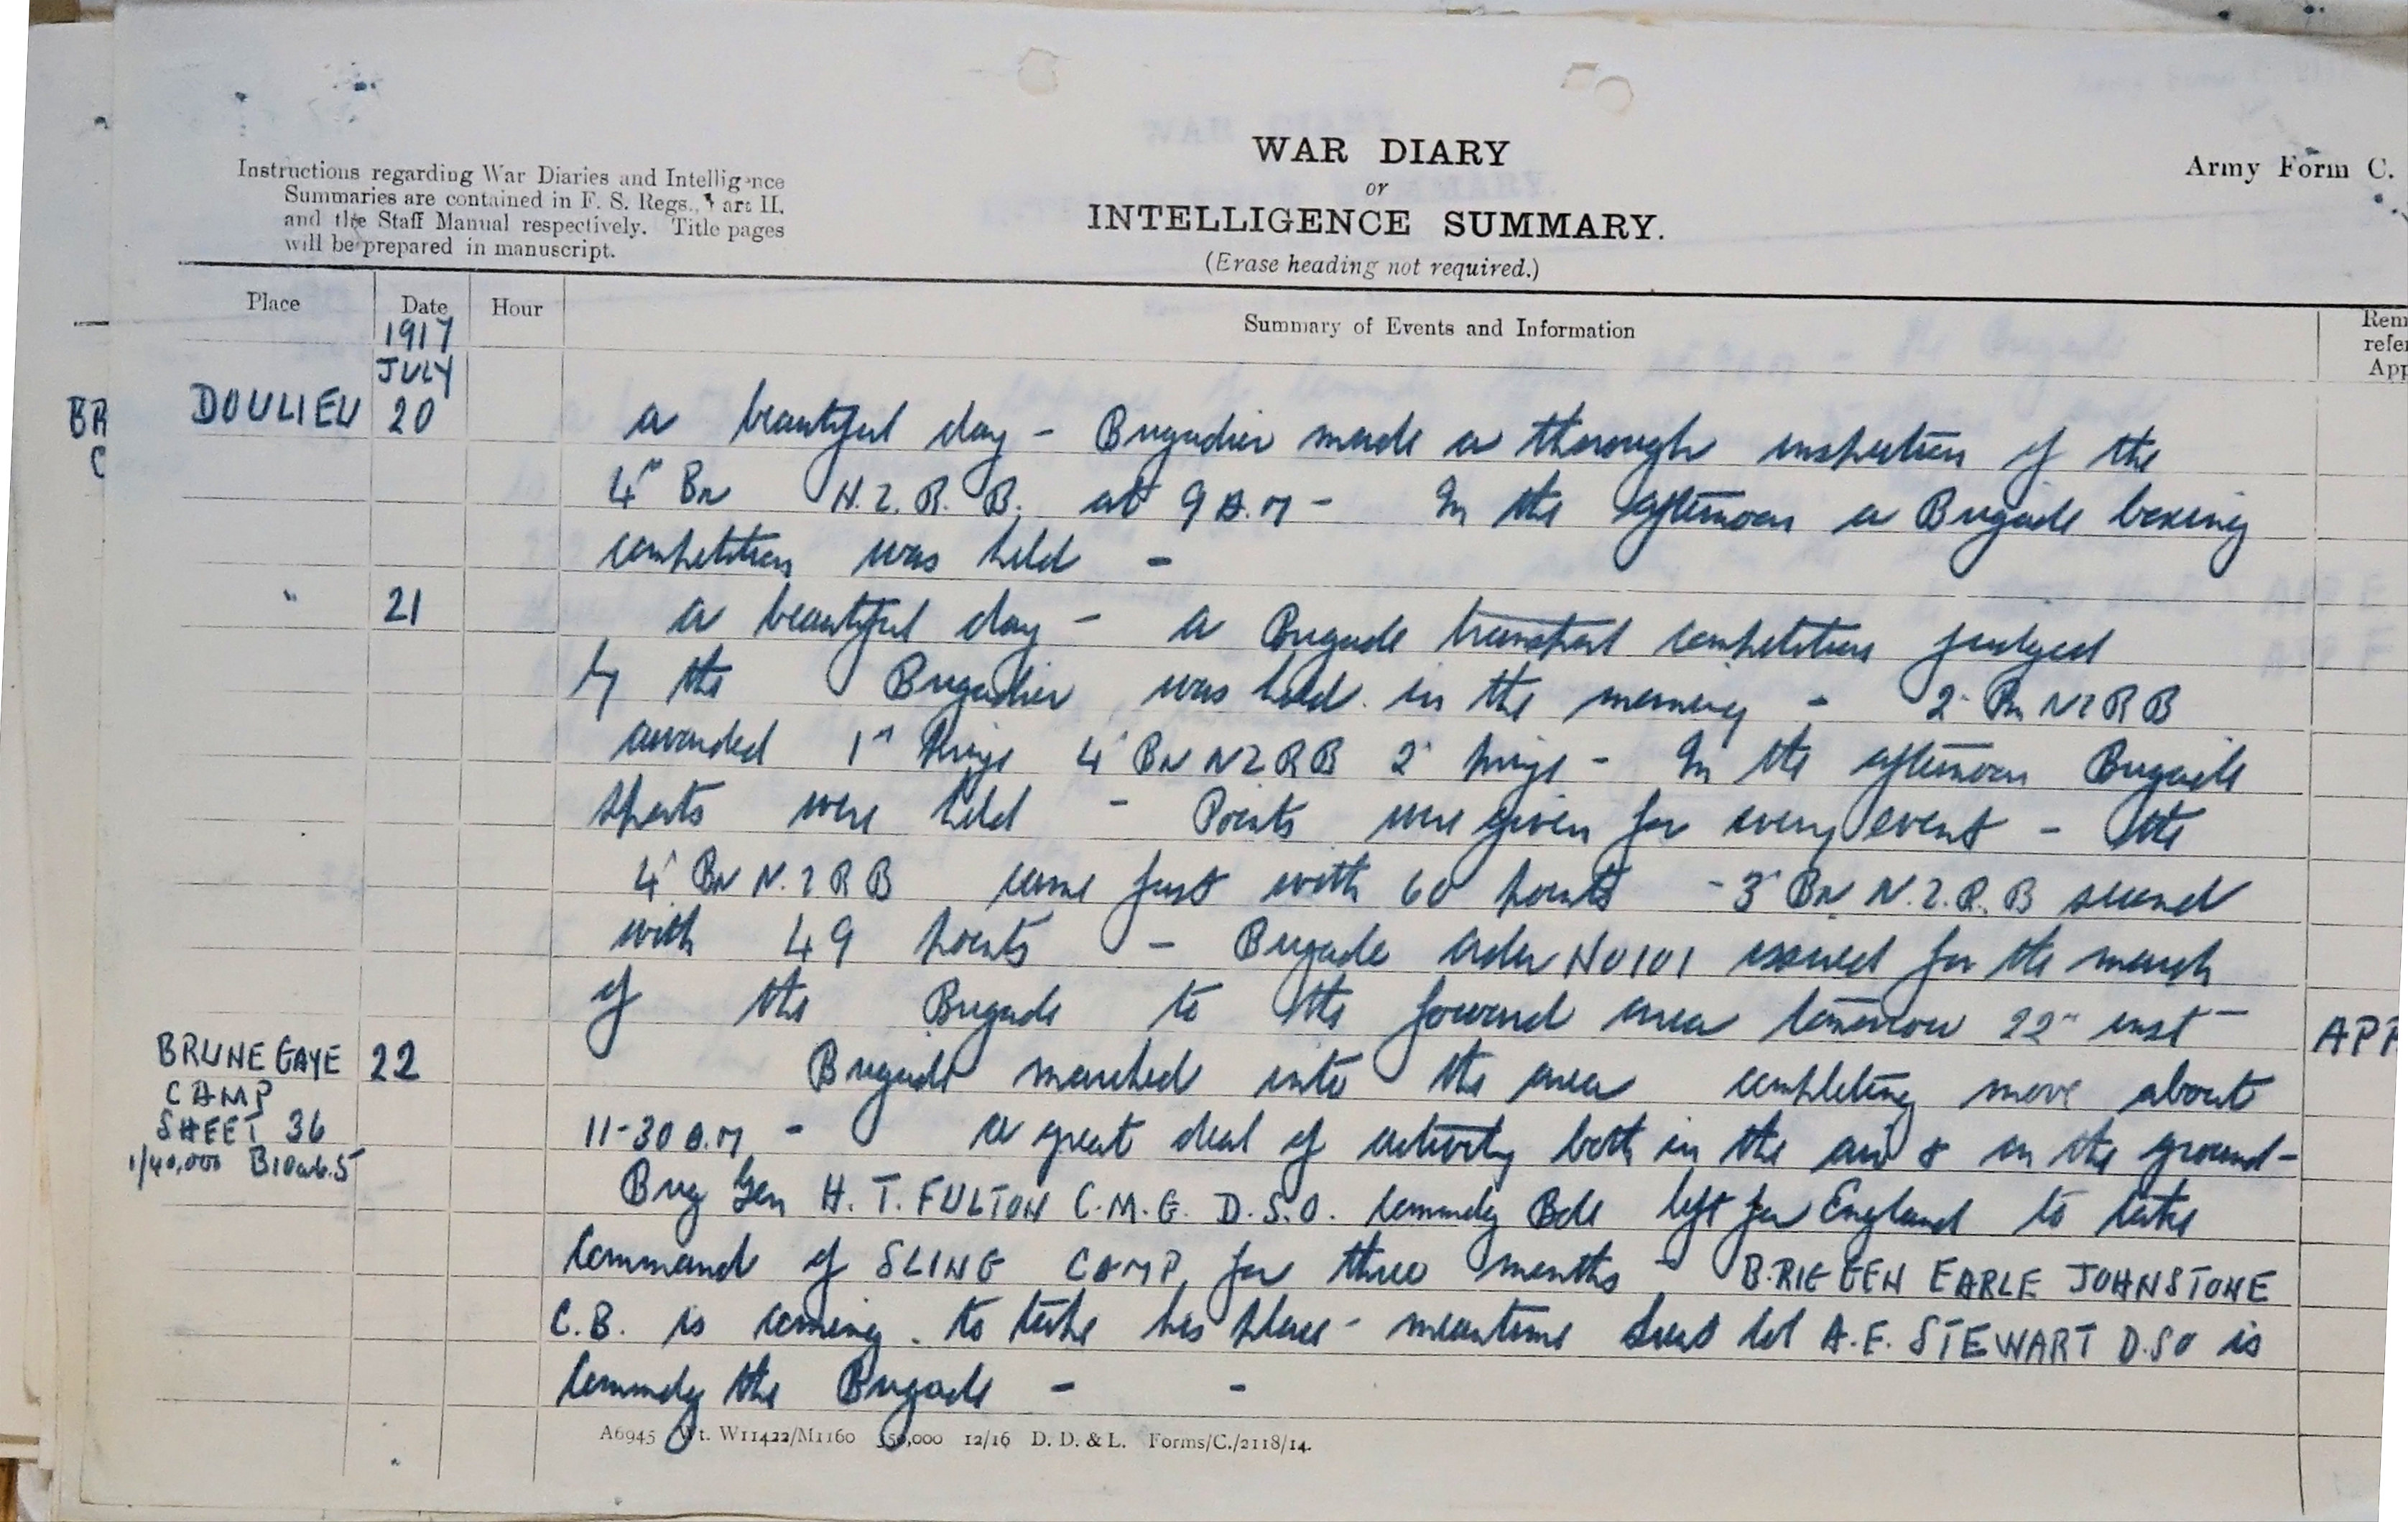 WAR DIARY
or
INTELLIGENCE SUMMARY.
(Erase heading not required.)
Instructions regarding War Diaries and Intelligence
Summaries are contained in F. S. Regs., Part II.
and the Staff Manual respectively. Title pages
will be prepared in manuscript.
Army Form C.
Place Date Hour Summary of Events and Information
Rem
refer
App
1917
JULY
BR
C
DOULIEU 20 a beautiful day - Brigadier made a thorough inspection of the
4th Bn N.Z.R.B. at 9 A.M - In the afternoon a Brigade boxing
competition was held -
" 21 a beautiful day - a Brigade transport competition judged
by the Brigadier was held in the morning - 2 Bn NZRB
awarded 1st prize 4 Bn NZRB 2 prize - In the afternoon Brigade
sports were held - Points were given for every event - the
4 Bn N.Z R B came first with 60 points - 3 Bn N.Z.R.B second
with 49 points - Brigade order No 101 issued for the march
of the Brigade to the forward area tomorrow 22nd inst - APP
BRUNE GAYE 22 Brigade marched into the area completing move about
CAMP
SHEET 36 11-30 A.M - a great deal of activity both in the air & on the ground -
1/40,000 B10a6.5 Brig Gen H. T. FULTON C.M.G. D.S.O. Commdg Bde left for England to take
Command of SLING CAMP for three months - BRIG GEN EARLE JOHNSTONE
C.B. is coming to take his place - meantime Lieut Col A.E. STEWART D.SO is
Commdg the Brigade - -
A6945 Wt. W11422/M1160 350,000 12/16 D. D. & L. Forms/C./2118/14.